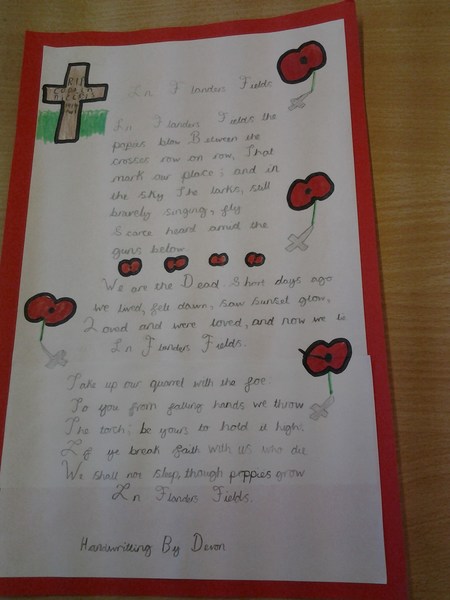 RIP
In Flanders Fields
In Flanders Fields the
popies blow Between the
crosses row on row, That
mark our place; and in
the sky The larks, still
bravely singing, fly
Scarce heard amid the
guns below.
We are the Dead Short days ago
we lived, felt down, saw sunset glow,
Loved and were loved, and now we lie
In Flanders Fields.
Take up our quarrel with the foe:
To you from falling hands we throw
The torch; be yours to hold it high.
If ye break faith with us who die
We shall not sleep, though poppies grow
In Flanders Fields.
Handwritting By Devon